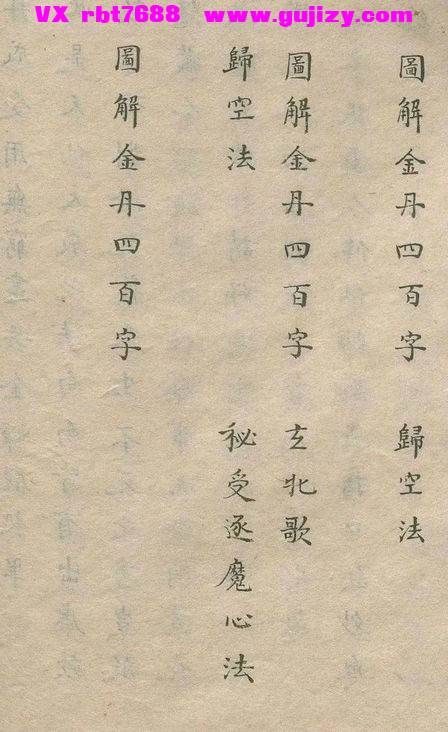 VX rbt7688 www.gujizy.com
圖解金丹四百字 歸空法
圖解金丹四百字 玄牝歌
歸空法 祕受逐魔心法
圖解金丹四百字